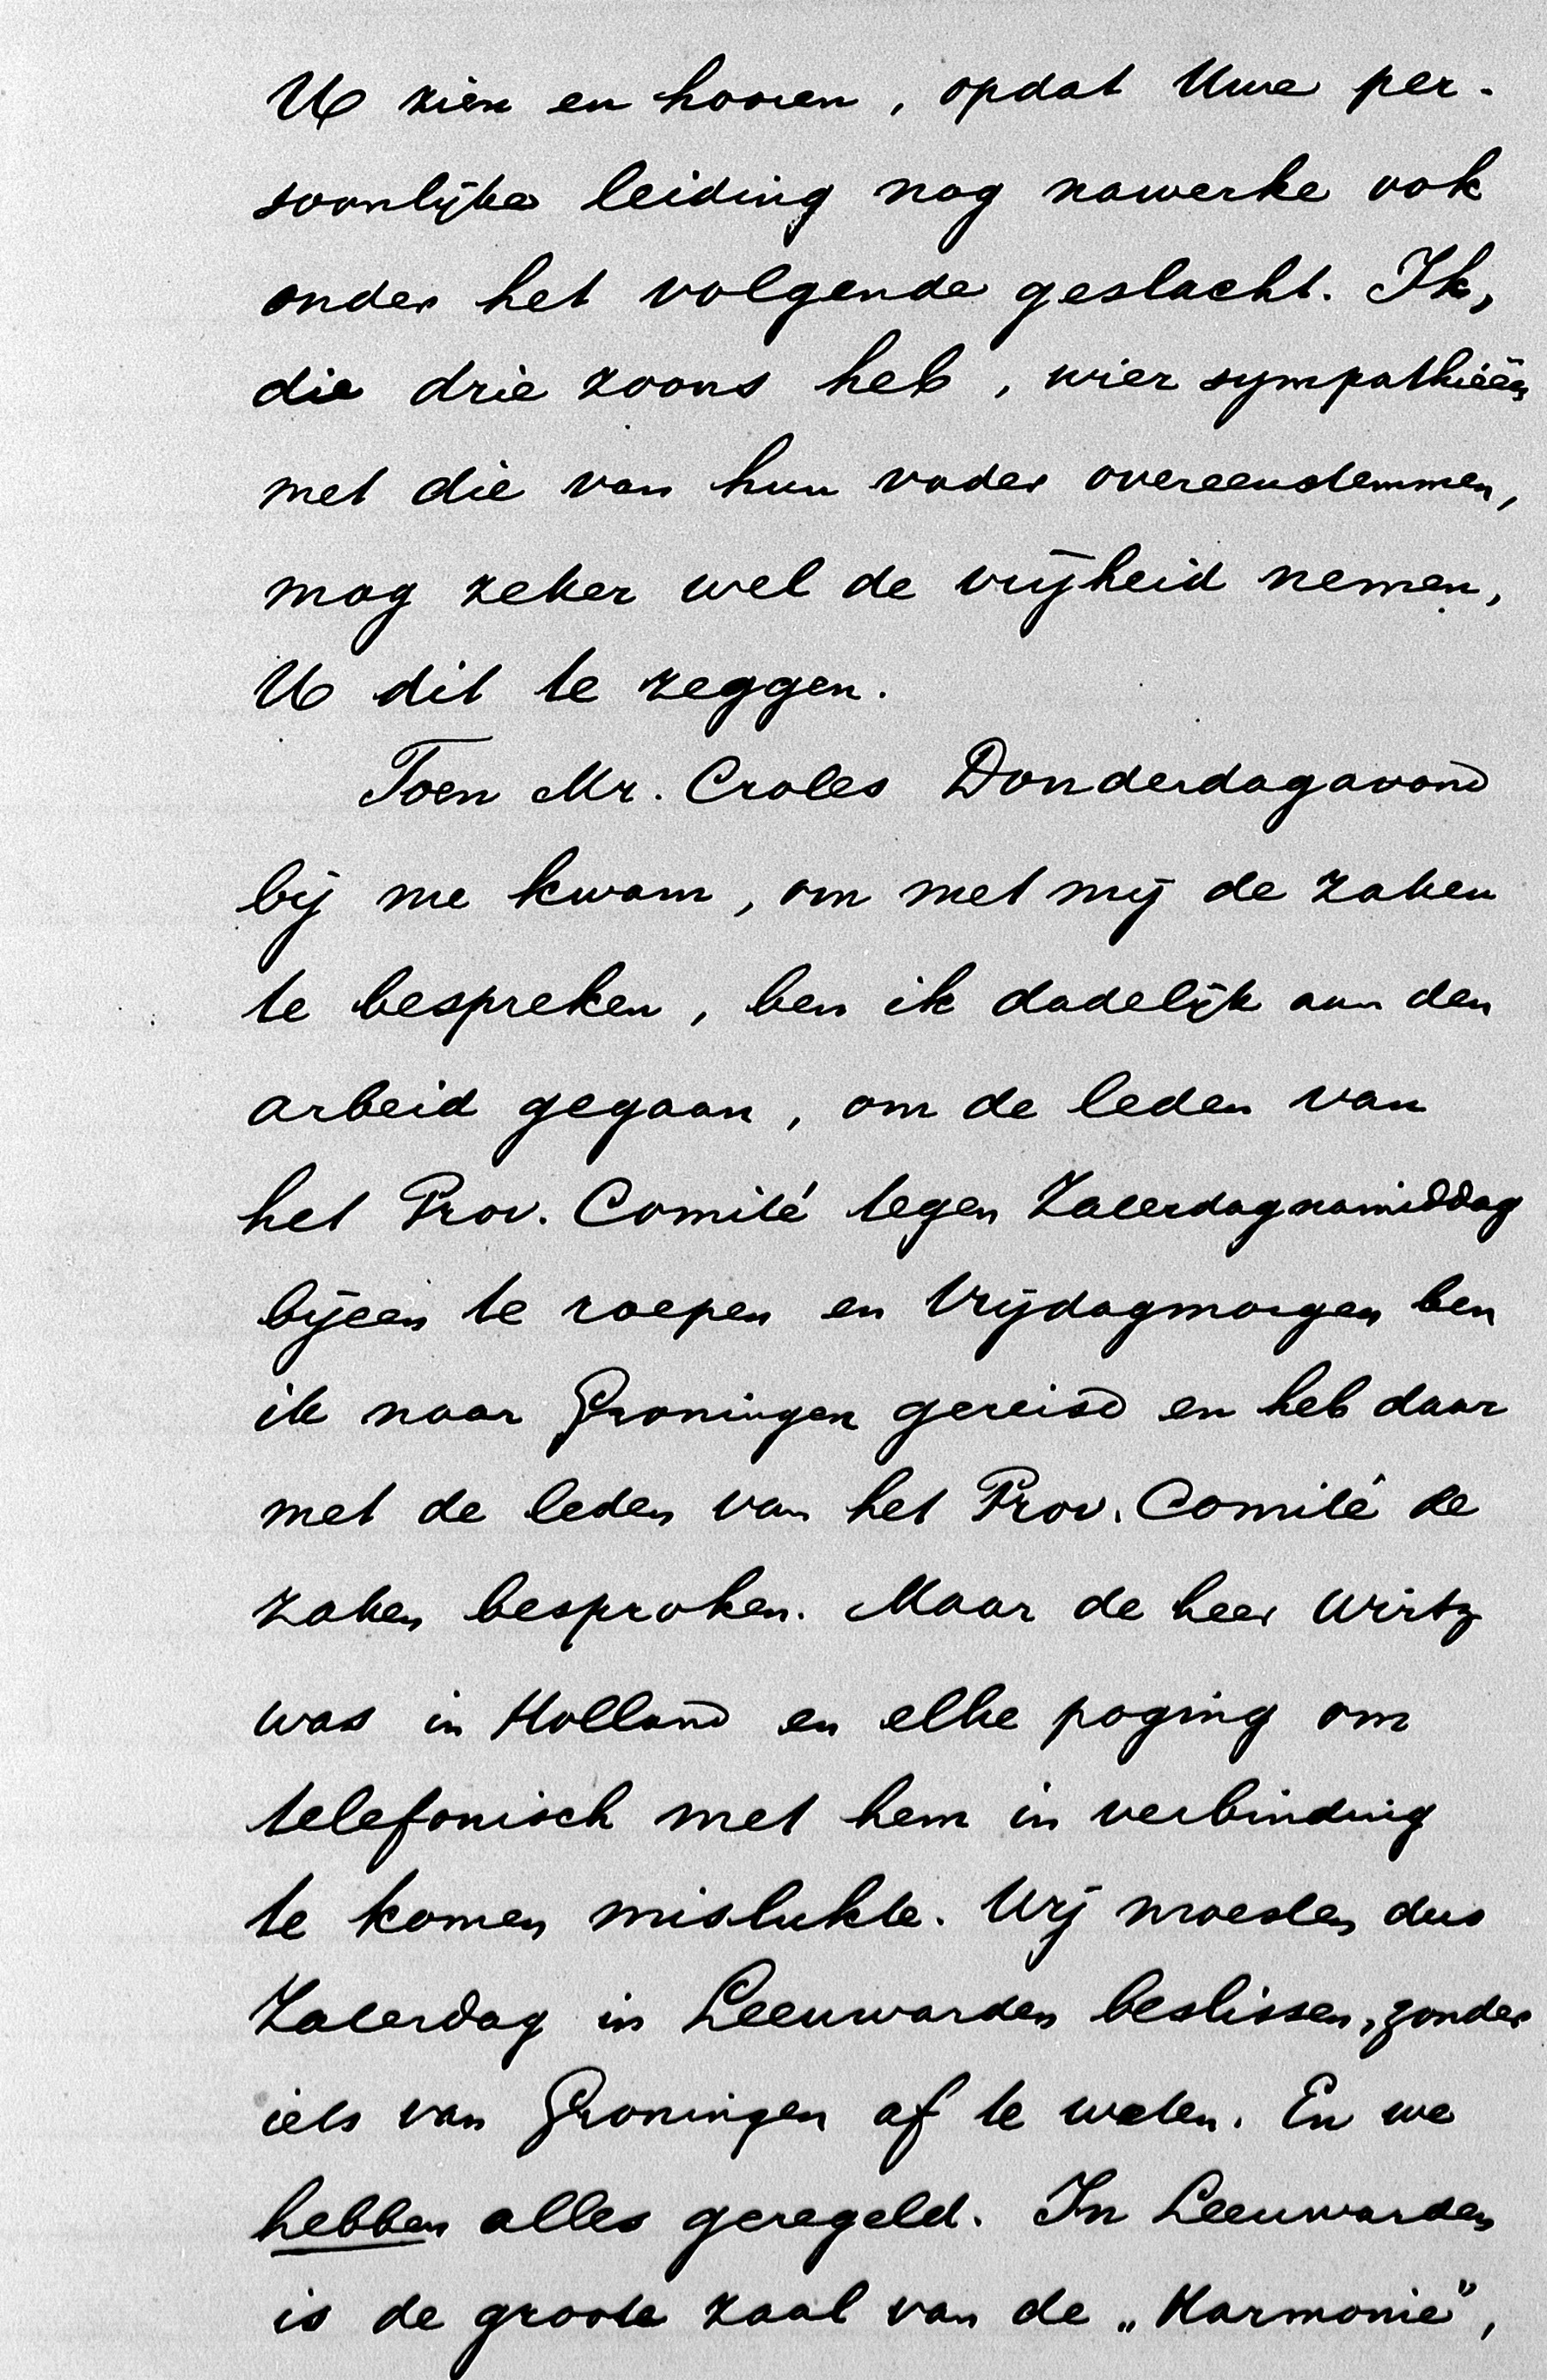 U zien en hooren, opdat Uwe per-
soonlijke leiding nog nawerke ook
onder het volgende geslacht. Ik,
die drie zoons heb, wier sympathieën
met die van hun vader overeenstemmen,
mag zeker wel de vrijheid nemen,
U dit te zeggen.
Toen Mr. Croles Donderdagavond
bij me kwam, om met mij de zaken
te bespreken, ben ik dadelijk aan den
arbeid gegaan, om de leden van
het Prov. Comité tegen Zaterdagnamiddag
bijeen te roepen en Vrijdagmorgen ben
ik naar Groningen gereisd en heb daar
met de leden van het Prov. Comité de
zaken besproken. Maar de heer Wirtz
was in Holland en elke poging om
telefonisch met hem in verbinding
te komen mislukte. Wij moesten dus
Zaterdag in Leeuwarden beslissen, zonder
iets van Groningen af te weten. En we
hebben alles geregeld. In Leeuwarden
is de groote zaal van de „Harmonie",